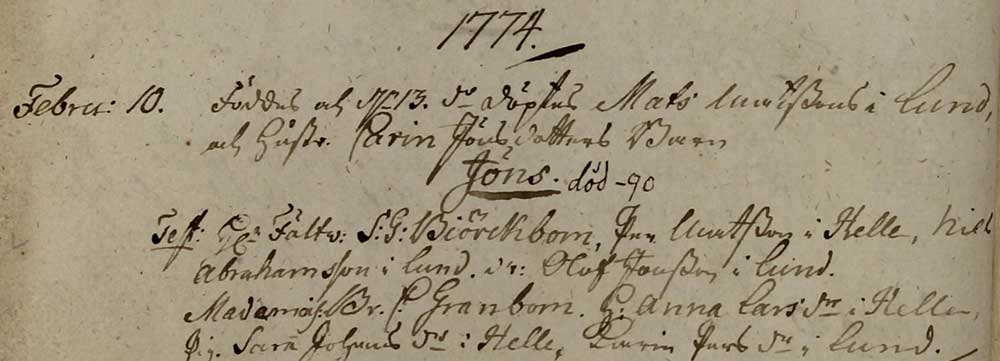 1774.
Febru: 10. Föddes och 13. do döptes Mats Matssons i Lund,
och Hustr. Carin Jöns dotters Barn
Jöns. död -90
Test: Fältw: S: G: Biörckbom, Per Matsson i Helle, Nils
Abrahamsson i Lund. dr: Olof Jonsson i Lund.
Madam Br. Granbom. H: Anna Lars dr i Helle,
Pig. Sara Johans dr i Helle, Karin Pers dr i Lund.